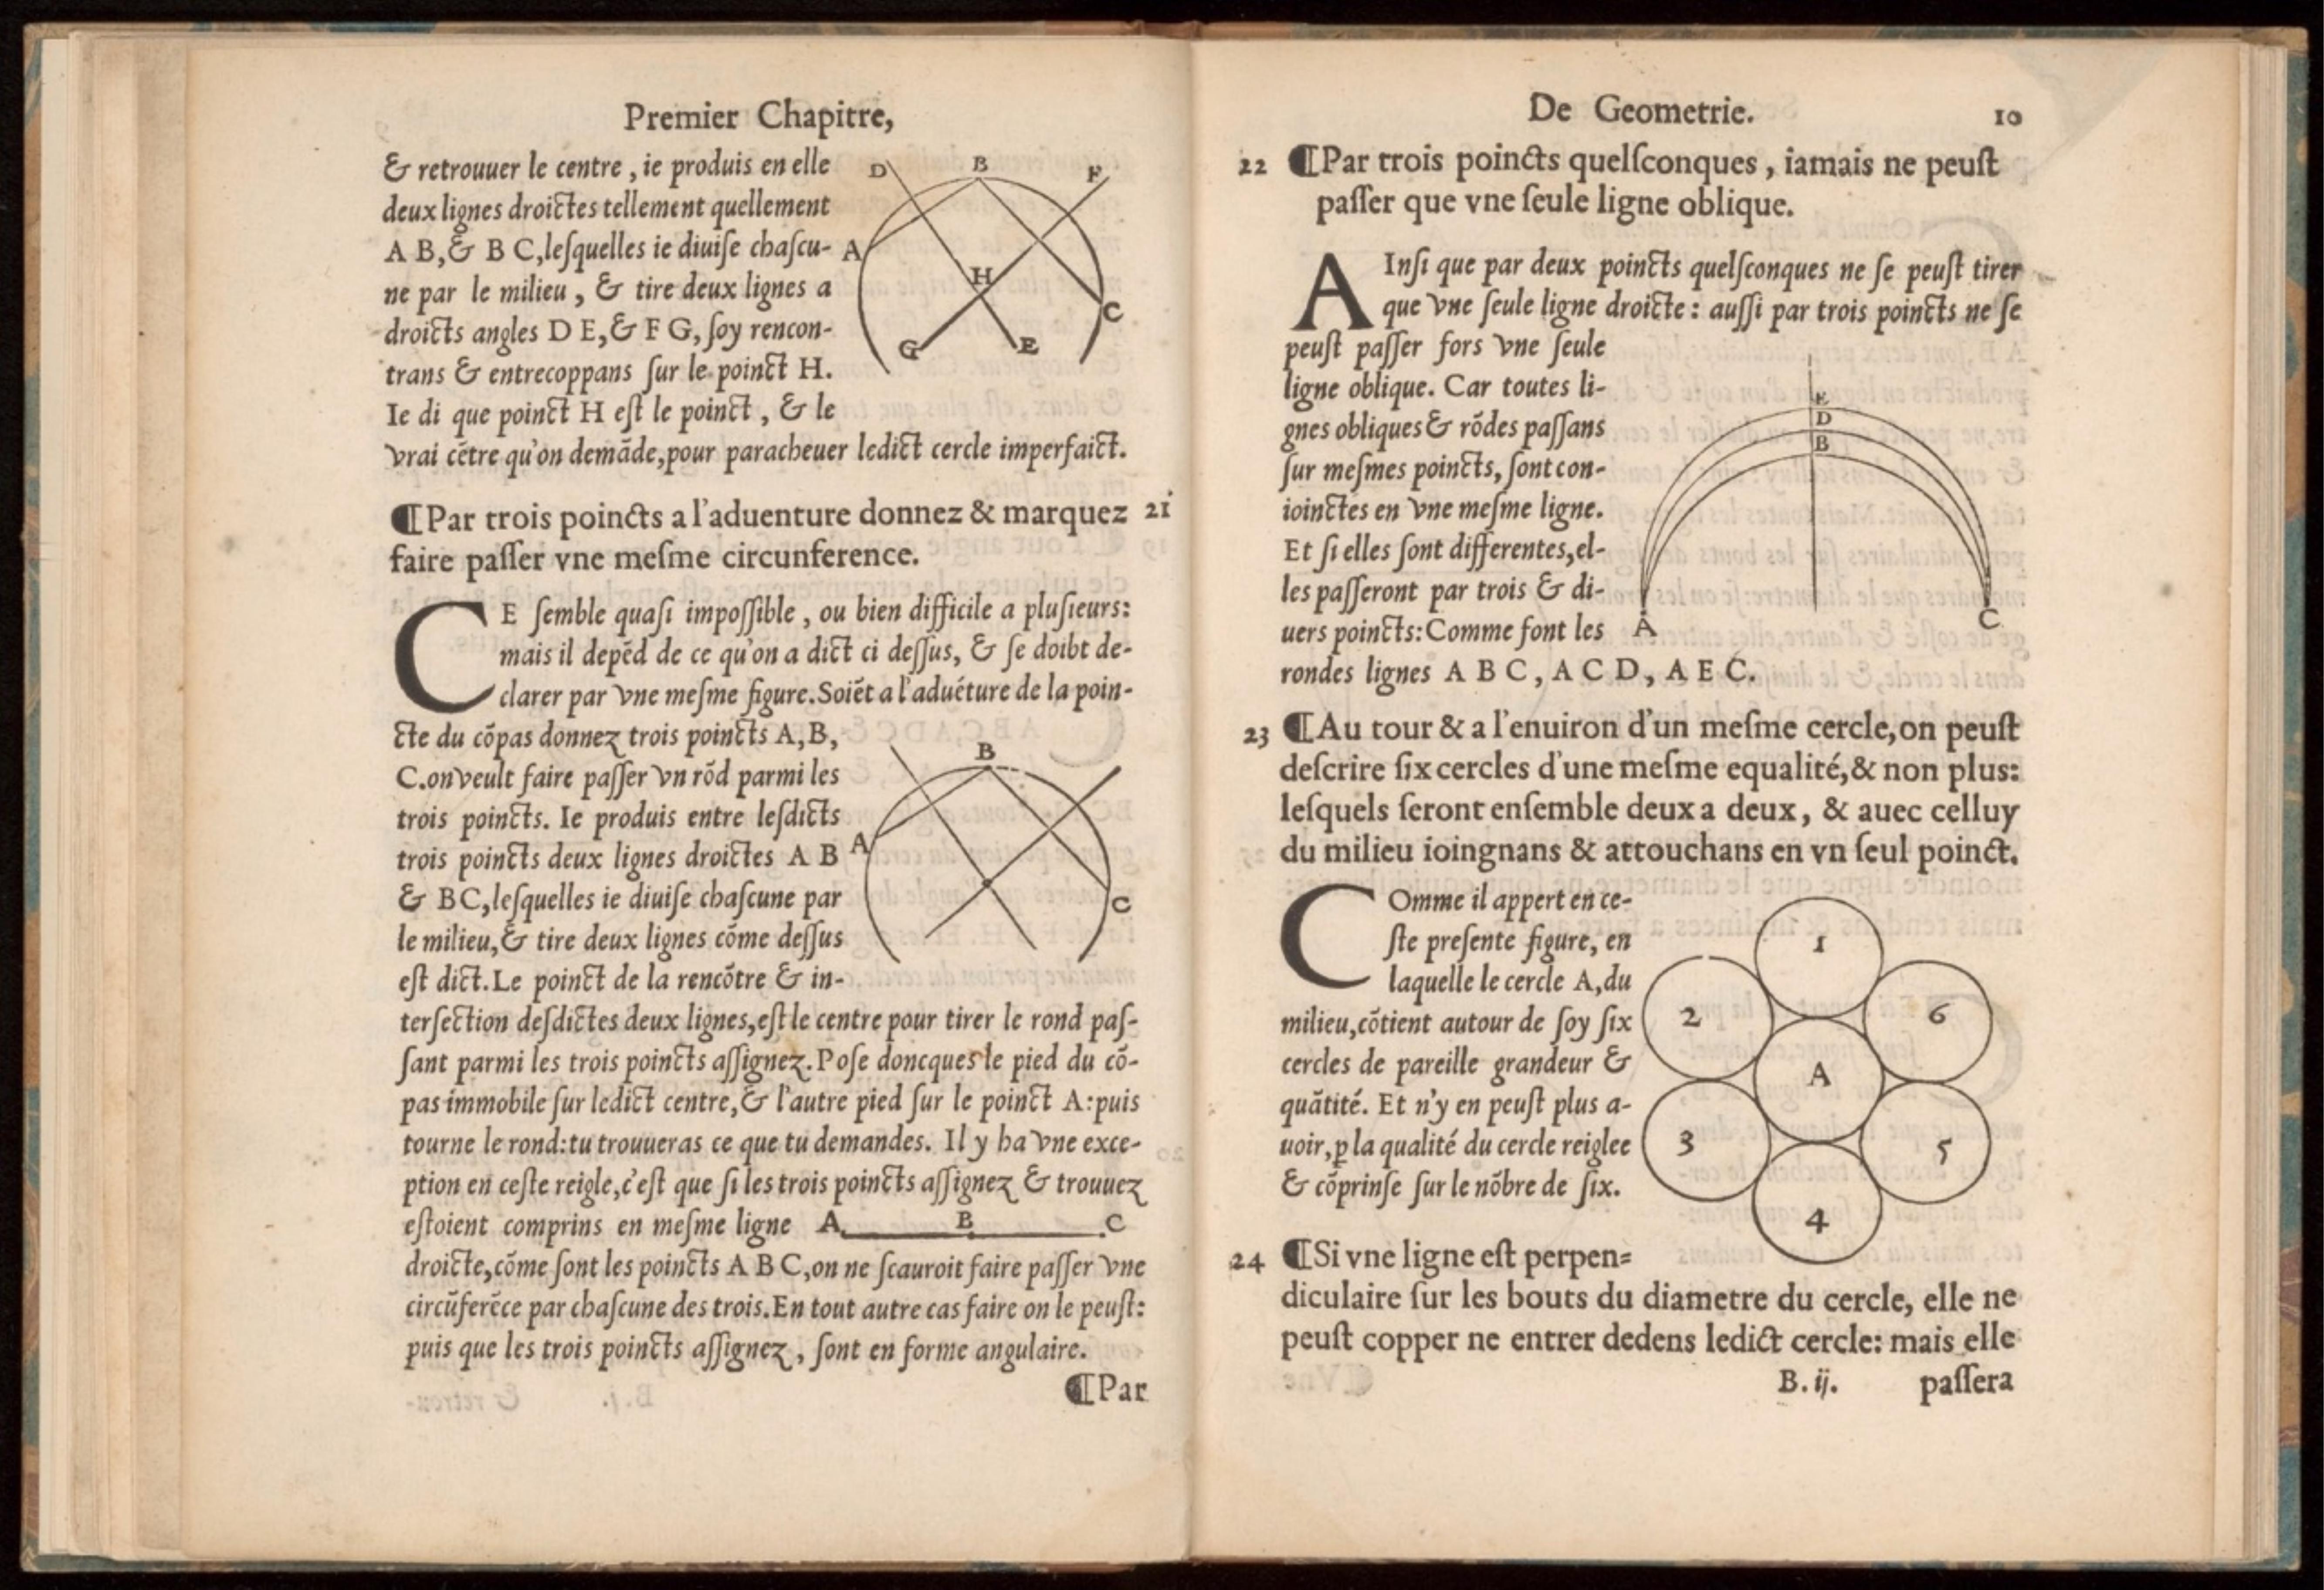 Premier Chapitre,
& retrouuer le centre, ie produis en elle
deux lignes droictes tellement quellement
A B, & B C, leſquelles ie diuiſe chaſcu-
ne par le milieu, & tire deux lignes a
droicts angles D E, & F G, ſoy rencon-
trans & entrecoppans ſur le poinct H.
Ie di que poinct H eſt le poinct, & le
vrai cētre qu'on demāde, pour paracheuer ledict cercle imperfaict.
D B F
A
H
C
G E
¶Par trois poincts a l'aduenture donnez & marquez 21
faire paſſer vne meſme circunference.
CE ſemble quaſi impoſſible, ou bien difficile a pluſieurs:
mais il depēd de ce qu'on a dict ci deſſus, & ſe doibt de-
clarer par vne meſme figure. Soiēt a l'aduēture de la poin-
cte du cōpas donnez trois poincts A, B,
C. on veult faire paſſer vn rōd parmi les
trois poincts. Ie produis entre leſdicts
trois poincts deux lignes droictes A B
& B C, leſquelles ie diuiſe chaſcune par
le milieu, & tire deux lignes cōme deſſus
eſt dict. Le poinct de la rencōtre & in-
B
A
C
terſection deſdictes deux lignes, eſt le centre pour tirer le rond paſ-
ſant parmi les trois poincts aſſignez. Poſe doncques le pied du cō-
pas immobile ſur ledict centre, & l'autre pied ſur le poinct A: puis
tourne le rond: tu trouueras ce que tu demandes. Il y ha vne exce-
ption en ceſte reigle, c'eſt que ſi les trois poincts aſſignez & trouuez
eſtoient comprins en meſme ligne A B C
droicte, cōme ſont les poincts A B C, on ne ſcauroit faire paſſer vne
circūferēce par chaſcune des trois. En tout autre cas faire on le peuſt:
puis que les trois poincts aſſignez, ſont en forme angulaire.
¶Par
De Geometrie. 10
22 ¶Par trois poincts quelſconques, iamais ne peuſt
paſſer que vne ſeule ligne oblique.
AInſi que par deux poincts quelſconques ne ſe peuſt tirer
que vne ſeule ligne droicte: auſſi par trois poincts ne ſe
peuſt paſſer fors vne ſeule
ligne oblique. Car toutes li-
gnes obliques & rōdes paſſans
ſur meſmes poincts, ſont con-
ioinctes en vne meſme ligne.
Et ſi elles ſont differentes, el-
les paſſeront par trois & di-
uers poincts: Comme font les
rondes lignes A B C, A C D, A E C.
E
D
B
A C
23 ¶Au tour & a l'enuiron d'un meſme cercle, on peuſt
deſcrire ſix cercles d'une meſme equalité, & non plus:
leſquels ſeront enſemble deux a deux, & auec celluy
du milieu ioingnans & attouchans en vn ſeul poinct.
COmme il appert en ce-
ſte preſente figure, en
laquelle le cercle A, du
milieu, cōtient autour de ſoy ſix
cercles de pareille grandeur &
quātité. Et n'y en peuſt plus a-
uoir, ꝑ la qualité du cercle reiglee
& cōprinſe ſur le nōbre de ſix.
1
2 6
A
3 5
4
24 ¶Si vne ligne eſt perpen=
diculaire ſur les bouts du diametre du cercle, elle ne
peuſt copper ne entrer dedens ledict cercle: mais elle
B. ij. paſſera